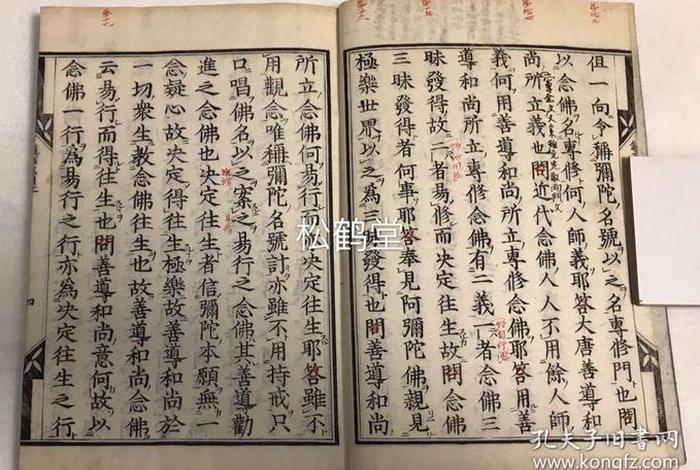 但一向令稱彌陀名號以之名專修門也問
以念佛名專修何人師義耶答大唐善導和
尚所立義也問近代念佛人人不用餘人師
義何用善導和尚所立專修念佛耶答用善
導和尚所立專修念佛有二義一者念佛三
昧發得故二者易修而決定往生故問念佛
三昧發得者何事耶答奉見阿彌陀佛親見
極樂世界以之爲三昧發得也問善導和尚
所立念佛何易行而決定往生耶答雖不
用觀念唯稱彌陀名號計亦雖不用持戒只
口唱佛名以之案之易行之念佛其善導勸
進之念佛也決定往生者信彌陀本願無一
念疑心故決定得往生極樂故善導和尚於
一切衆生教念佛往生也故善導和尚念佛
云易行而得往生也問善導和尚意何故以
念佛一行爲易行之行亦爲決定往生之行
四
松鹤堂
孔夫子旧书网
www.kongfz.com